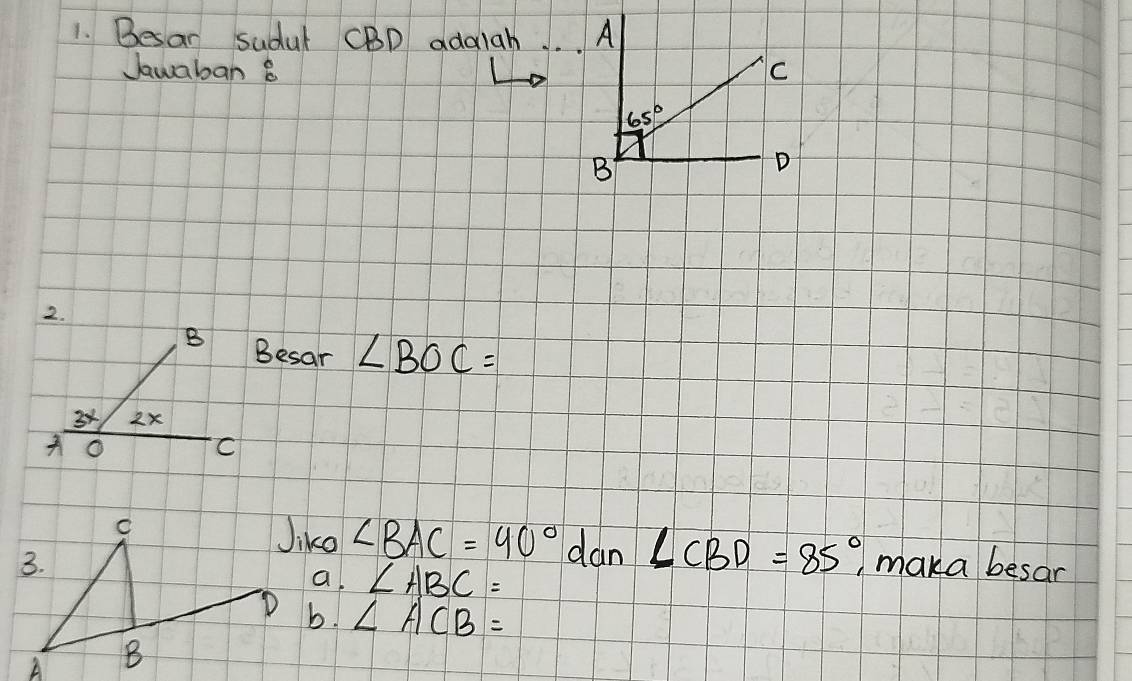 1. Besar sudut CBD adalah ...
Jawaban :
A
C
65°
B
D
2.
B
Besar ∠BOC =
3x
2x
A
O
C
3.
C
Jika ∠BAC = 40° dan ∠CBD = 85°, maka besar
a. ∠ABC =
D
b. ∠ACB =
A
B